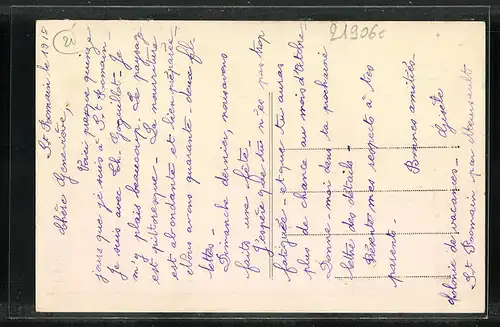 St Romain le 1912
Chère Geneviève,
Voici presque quinze
jours que je suis à St Romain -
Je suis avec Ch. Je
m'y plais beaucoup. Le paysage
est pittoresque - La nourriture
est abondante et bien préparée -
Nous avons quarante-deux fil-
lettes -
Dimanche dernier, nous avons
faits une fête -
J'espère que tu n'es pas trop
fatiguée - et que tu auras
plus de chance au mois d'Octobre
Donne-moi dans ta prochaine
lettre des détails -
Présente mes respects à tes
parents -
Bonnes amitiés.
Gisèle
Colonie de vacances -
St Romain par Meursault
21906c